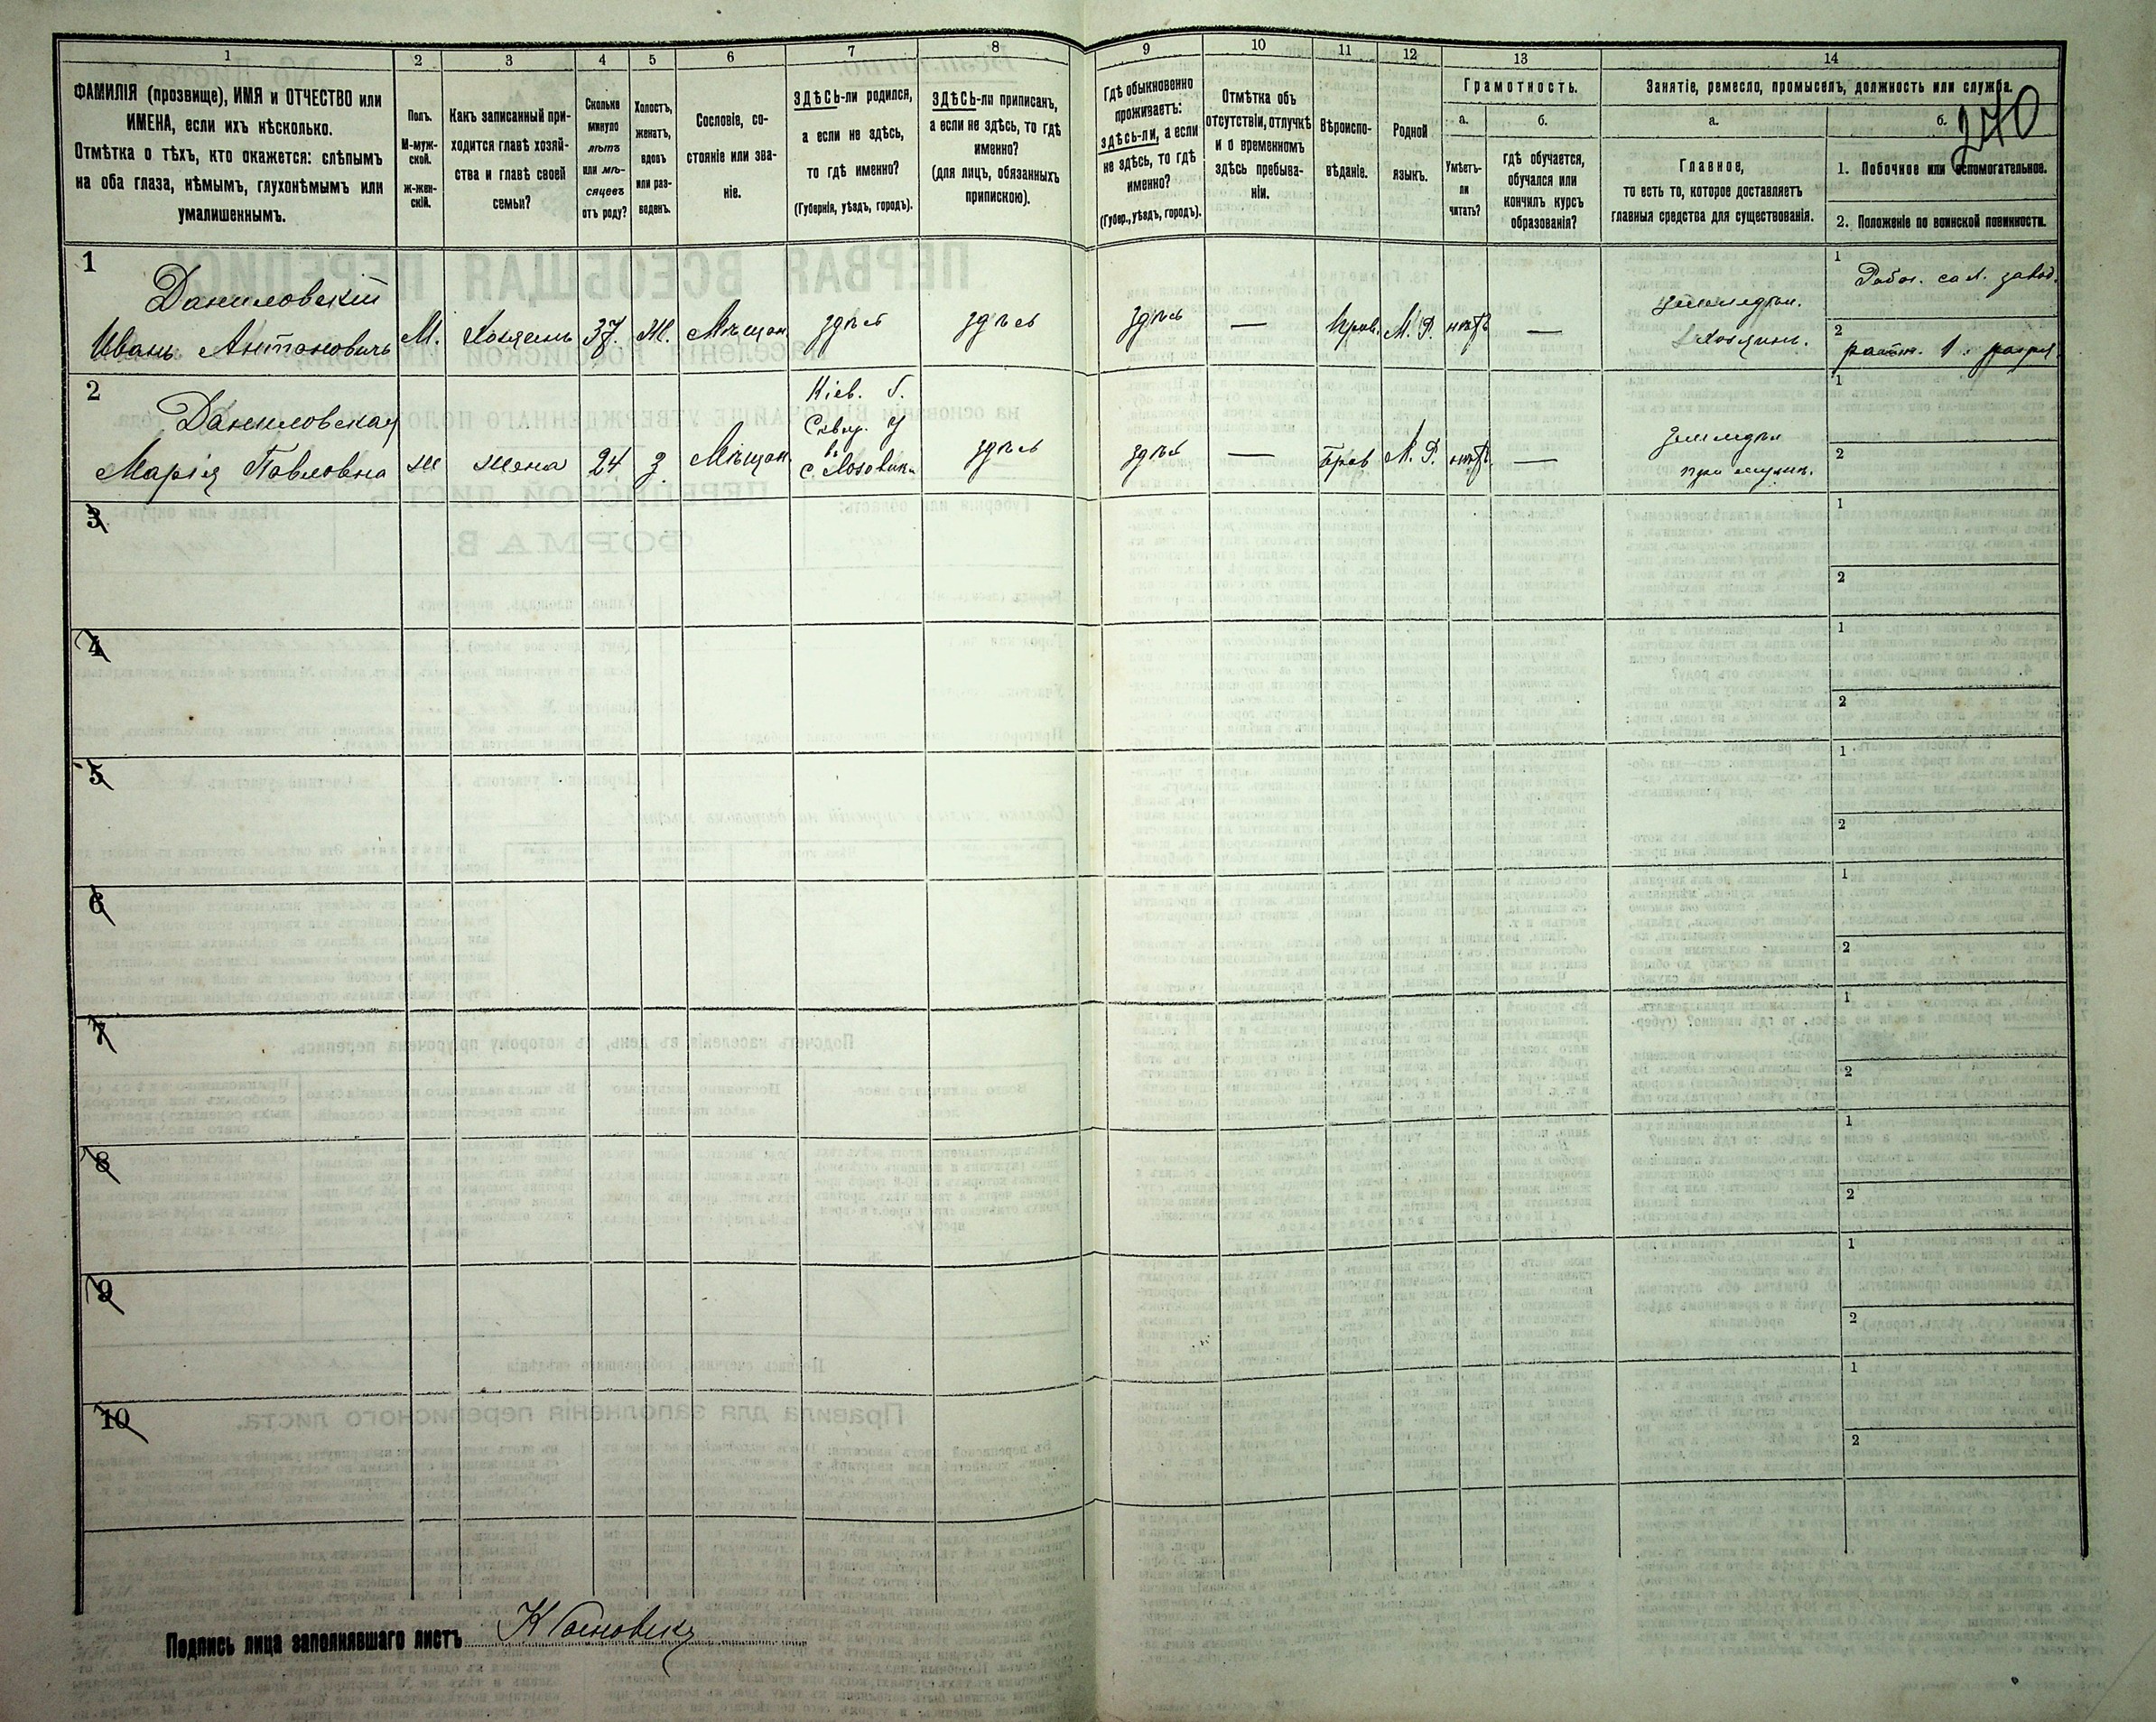 1
2
3
4
5
6
7
8
9
10
11
12
13
14
ФАМИЛІЯ (прозвище), ИМЯ и ОТЧЕСТВО или
ИМЕНА, если ихъ нѣсколько.
Отмѣтка о тѣхъ, кто окажется: слѣпымъ
на оба глаза, нѣмымъ, глухонѣмымъ или
умалишеннымъ.
Полъ.
М-муж-
ской.
ж-жен-
скій.
Какъ записанный при-
ходится главѣ хозяй-
ства и главѣ своей
семьи?
Сколько
минуло
лѣтъ
или мѣ-
сяцевъ
отъ роду?
Холостъ,
женатъ,
вдовъ
или раз-
веденъ.
Сословіе, со-
стояніе или зва-
ніе.
ЗДѢСЬ-ли родился,
а если не здѣсь,
то гдѣ именно?
(Губернія, уѣздъ, городъ).
ЗДѢСЬ-ли приписанъ,
а если не здѣсь, то гдѣ
именно?
(для лицъ, обязанныхъ
припискою).
Гдѣ обыкновенно
проживаетъ:
здѣсь-ли, а если
не здѣсь, то гдѣ
именно?
(Губер., уѣздъ, городъ).
Отмѣтка объ
отсутствіи, отлучкѣ
и о временномъ
здѣсь пребыва-
ніи.
Вѣроиспо-
вѣданіе.
Родной
языкъ.
Грамотность.
а.
Умѣетъ-
ли
читать?
б.
гдѣ обучается,
обучался или
кончилъ курсъ
образованія?
Занятіе, ремесло, промыселъ, должность или служба.
а.
Главное,
то есть то, которое доставляетъ
главныя средства для существованія.
б.
270
1. Побочное или вспомогательное.
2. Положеніе по воинской повинности.
1
Даниловскій
Иванъ Антоновичъ
М.
Хозяинъ
37.
Ж.
Мѣщан.
здѣсь
здѣсь
здѣсь
—
Прав.
М. Р.
нѣтъ
—
Земледѣл.
Хозяинъ.
1
Рабоч. сах. завод.
2
ратн. 1. разря.
2
Даниловская
Марія Павловна
ж
жена
24
з
Мѣщан.
Кіев. Г.
Сквир. У
въ
с.
здѣсь
здѣсь
—
Прав
М. Р.
нѣтъ.
—
Земледѣл
при мужѣ.
1
2
3
1
2
4
1
2
5
1
2
6
1
2
7
1
2
8
1
2
9
1
2
10
1
2
Подпись лица заполнявшаго листъ